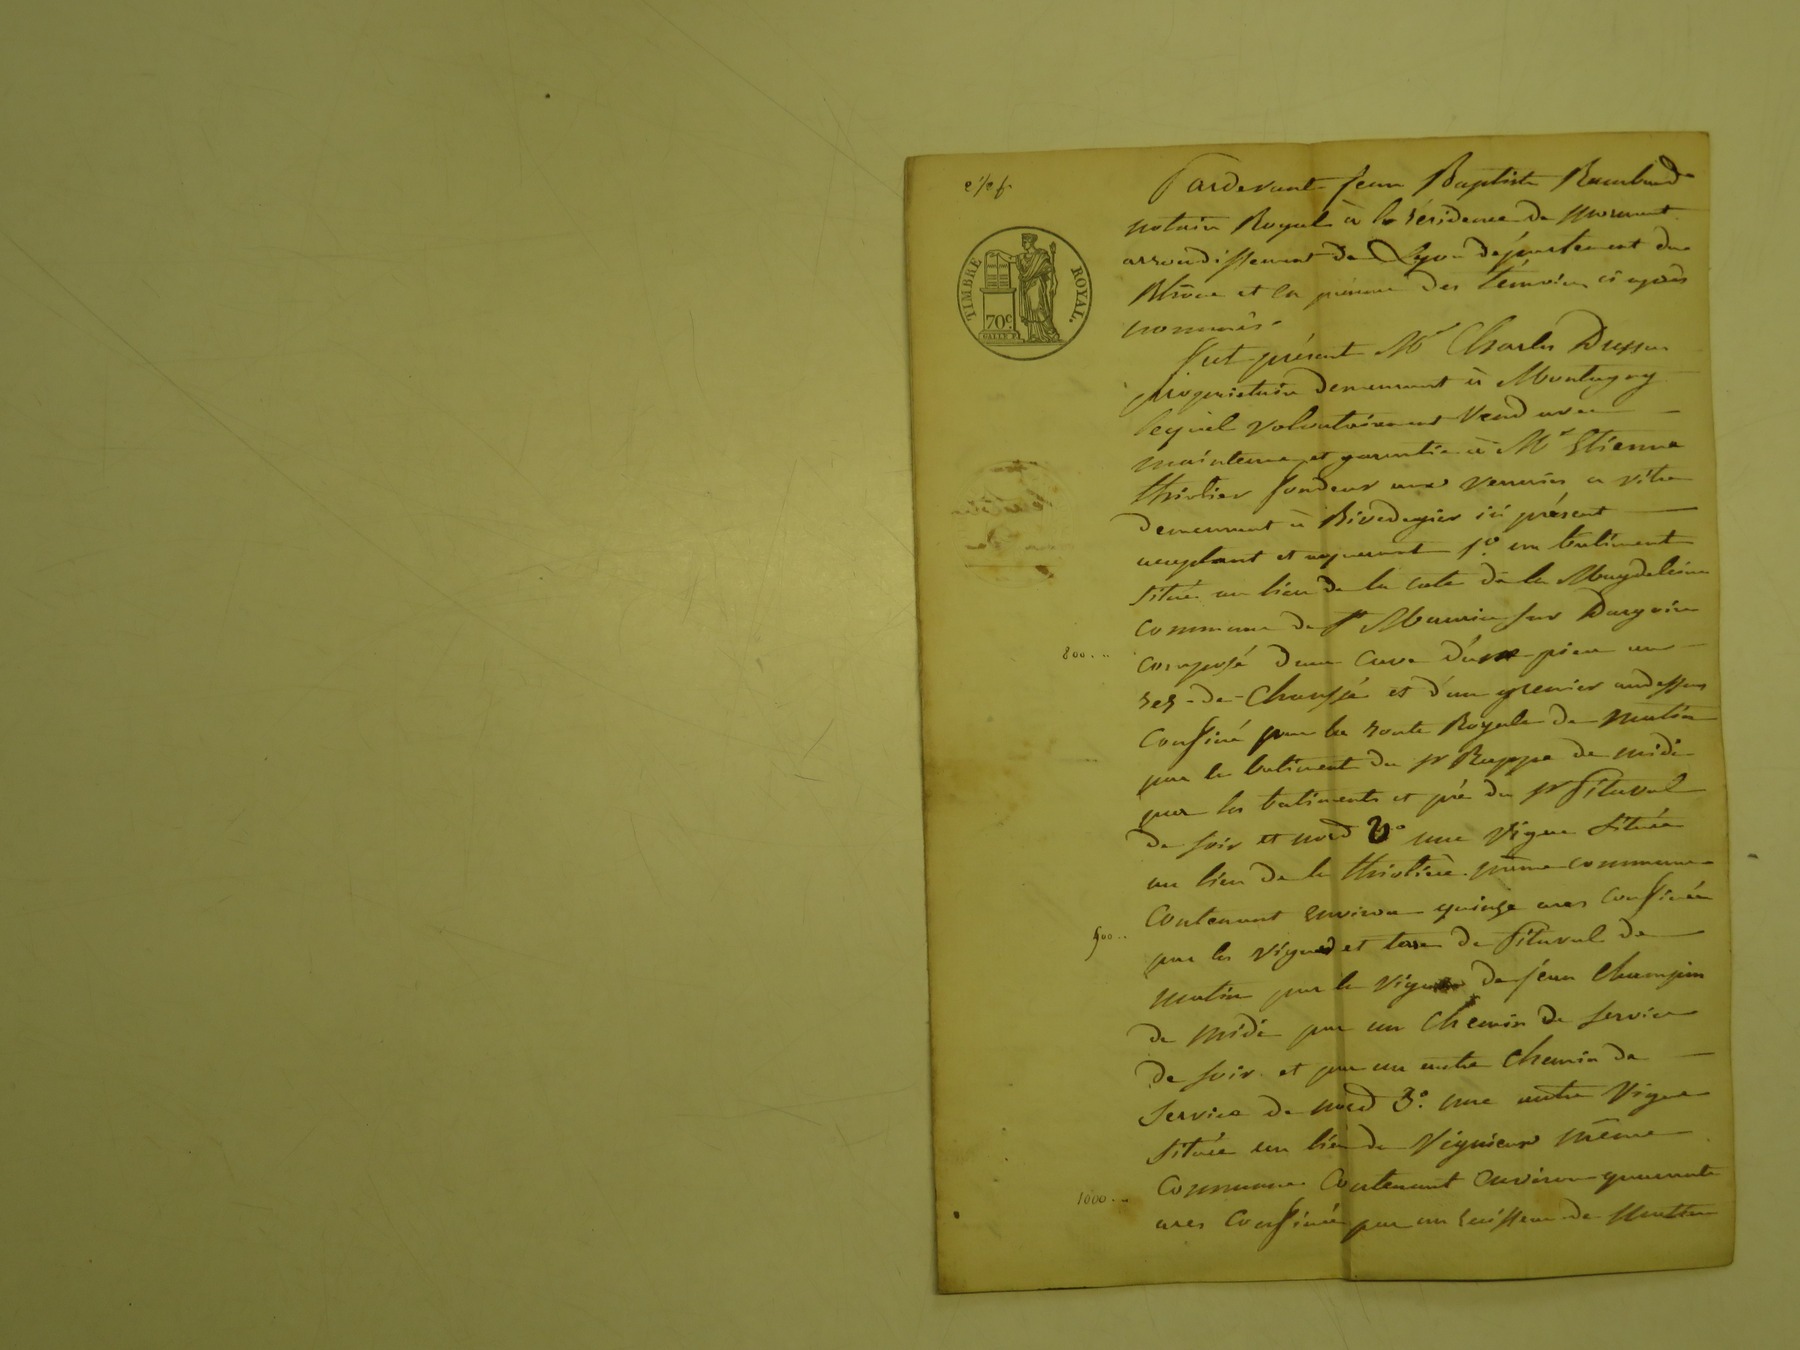 TIMBRE ROYAL.
70c.
Pardevant Jean Baptiste Rambaud
notaire Royal à la résidence de Mornant
arrondissement de Lyon département du
Rhône et en présence des témoins ci après
nommés.
fut présent Mr Charles
propriétaire demeurant à Montagny
lequel volontairement vend avec
maintenue et garantie à Mr Etienne
thiolier fondeur aux verreries a vitre
demeurant à Rivedegier ici présent
acceptant et acquerant 1o. un batiment
situé au lieu de la cote de la Magdeleine
commune de St Maurice sur Dargoire
800..
composé dune cave d'une piece au
rez-de-Chaussée et d'un grenier audessus
Confiné par la route Royale de matin
par le batiment du sr Rappe de midi
par les batiments et pré du sr Pitaval
de soir et nord 2o une vigne située
au lieu de la thiolière même commune
Contenant environ quinze ares confinée
500..
par les vignes et terre de Pitaval de
matin par la vigne de jean
de midi par un Chemin de service
de soir et par un autre chemin de
service de nord 3o. une autre vigne
située au lieu de même
Commune Contenant environ quarante
1000..
ares Confinée par un ruisseau de